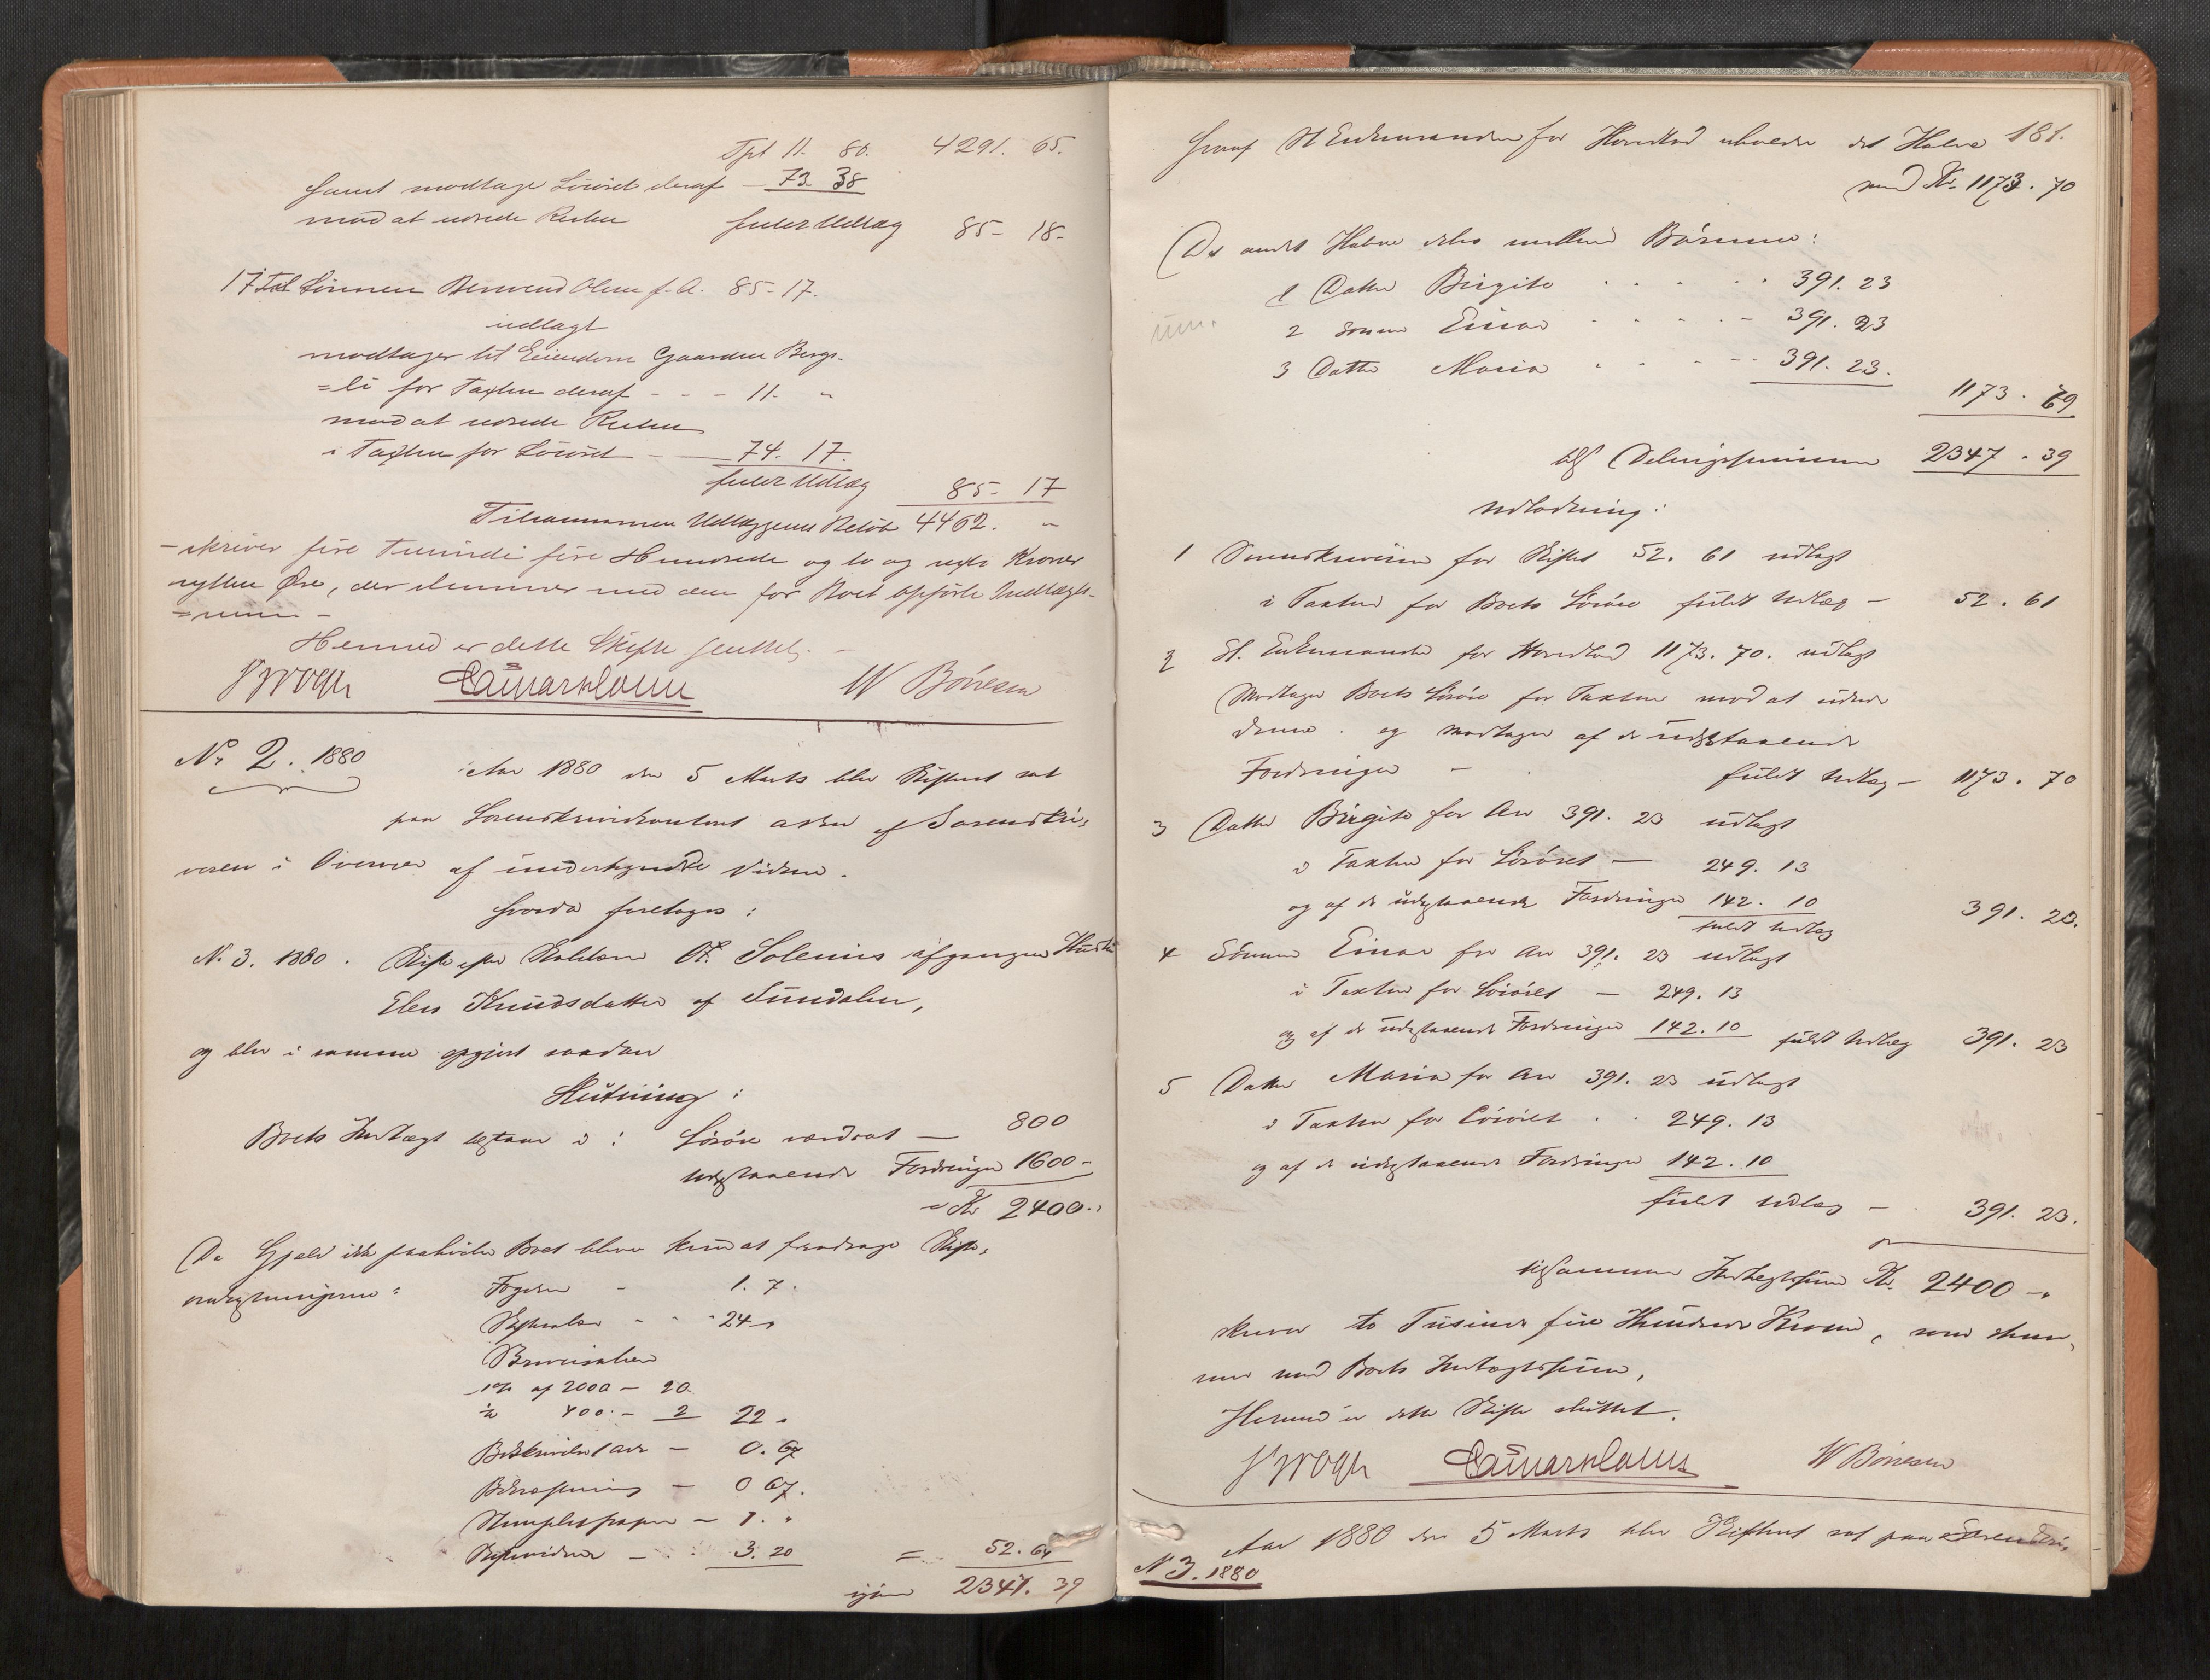 Tpt 11. 80. 4291. 65.
samt modtage Løsøret deraf - 73. 38
mod at udrede Resten fuldt Udlæg 85- 18-
17 Til Sønnen Bernend Olsen f. A. 85-17.
udlagt
modtager til Eiendom Gaarden Bergs-
=li for Taxten deraf - - - 11. "
mod at udrede Resten
i Taxten for Løsøret - 74. 17.
fuldt Udlæg 85- 17
Tilsammen Udlæggenes Beløb 4462. "
- skriver fire Tusinde fire Hundrede og to og sexti Kroner
Øre, der stemmer med den for Boet opførte Indtægts-
=sum -
Hermed er dette Skifte sluttet. -
W Børresen
No 2. 1880 Aar 1880 den 5 Marts blev Skifteret sat
paa Sorenskriverkontoret af Sorenskri-
veren i Overvær af undertegnede Vidner.
hvorda foretages:
N. 3. 1880. Skifte efter Ot. Solemus afgangne Hustru
Elen Knudsdatter af Sundalen,
og blev i samme opgjort saadan
Slutning:
Boets Indtægt bestaar i: Løsøre værdsat - 800
udestaaende Fordringer 1600 -
= Kr 2400..
Da Gjæld ikke paahviler Boet bliver kun at fradrage Skifte-
omkostningerne: Fogden - 1. 7.
Skiftesalær - - 24 "
Brændevinskassen
1 % af 2000 - 20
½ 400. - 2 22 "
Beskrivelse - 0. 67
- 0 67.
Stemplet papir - 1. "
Skiftevidner - - 3. 20 = 52. 61
igjen 2347. 39
181.
Hvoraf St Enkemanden for Hovedlod udbeholder det Halve
med Kr. 1173. 70
Det andet Halve deles mellem Børnene:
1 Datter Birgite . . . . . 391. 23
2 Sønnen Einar - - - - - 391. 23
3 Datter Maria . . - - - 391. 23.
1173. 69
lig Delingssummen 2347. 39
Udlodning:
1 Sorenskriveren for Skiftet 52. 61 udlagt
i Taxten for Boets Løsøre fuldt Udlæg - 52. 61
2 St. Enkemanden for Hovedlod 1173. 70. udlagt
Modtager Boets Løsøre for Taxten mod at udrede
denne. og modtager af de udestaaende
Fordringer - fuldt Udlæg - 1173. 70
3 Datter Birgite for Arv 391. 23 udlagt
i Taxten for Løsøret - 249. 13
og af de udestaaende Fordringer 142. 10
fuldt Udlæg 391. 23.
4 Sønnen Einar for Arv 391. 23 udlagt
i Taxten for Løsøret - 249. 13
og af de udestaaende Fordringer 142. 10 fuldt Udlæg 391. 23
5 Datter Maria for Arv 391. 23 udlagt
i Taxten for Løsøret . . 249. 13
og af de udestaaende Fordringer 142. 10
fuldt Udlæg - 391. 23.
tilsammen Indtægtssum Kr. 2400 -.
skriver to Tusinde fire Hundrede Kroner, som stem-
mer med Boets Indtægtssum.
Hermed er dette Skifte sluttet.
W Børresen
Aar 1880 den 5 Marts blev Skifteret sat paa Sorenskri-
N 3. 1880